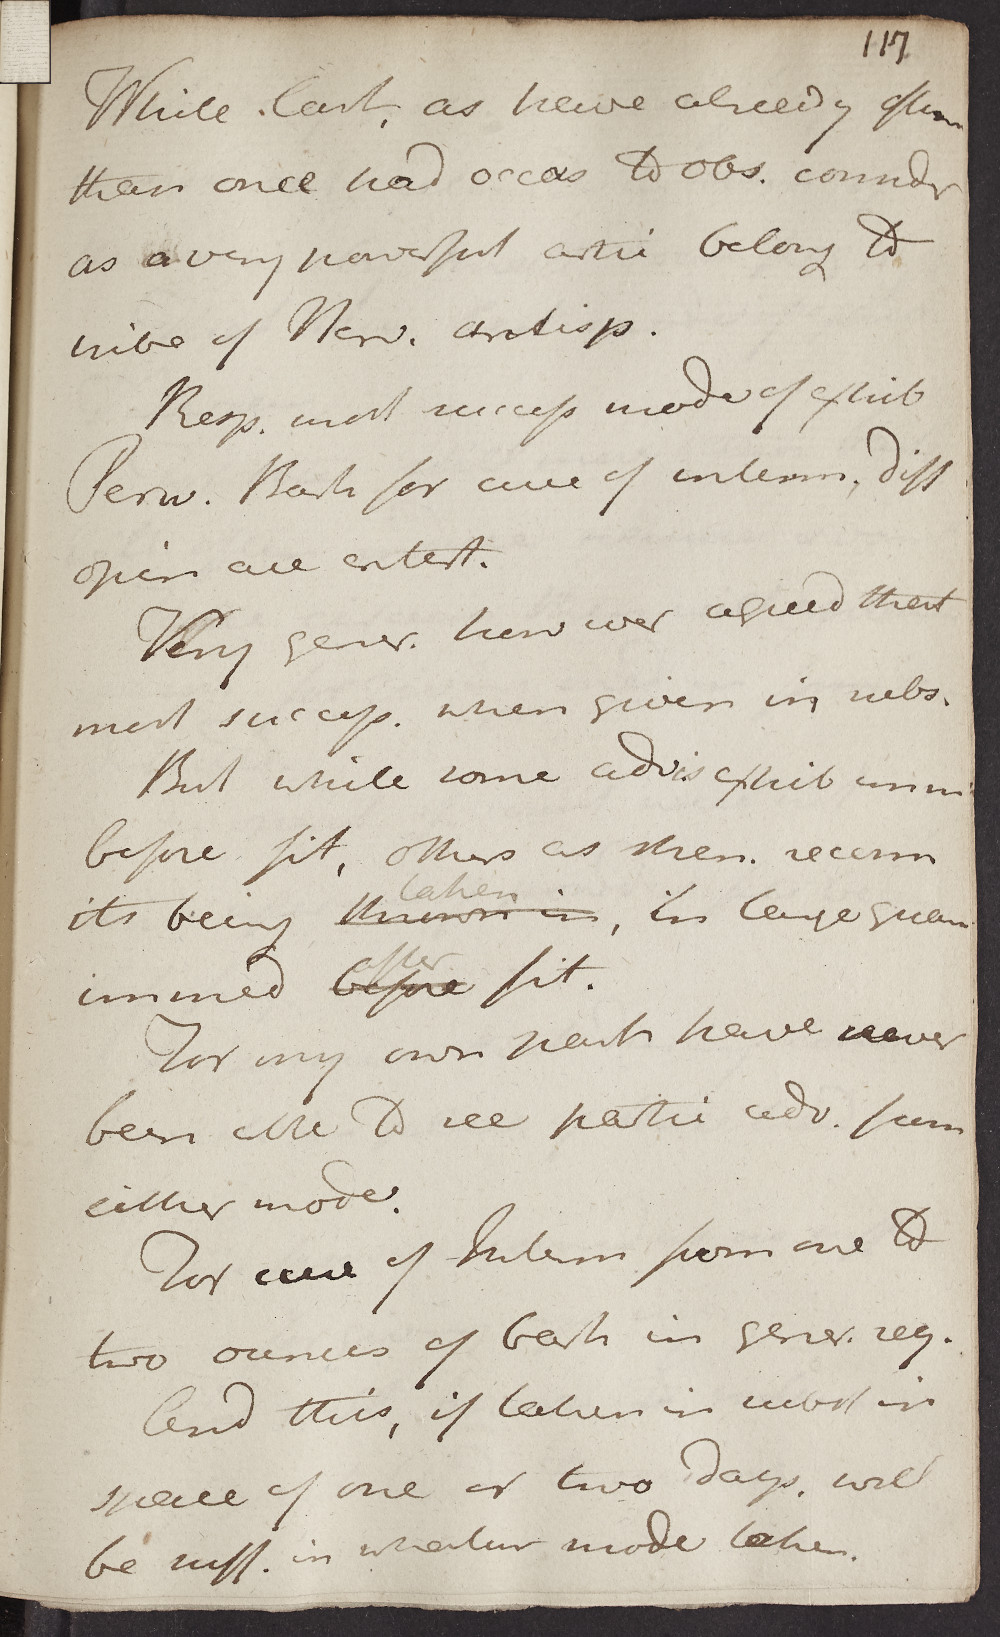 117
While last, as have already often
than once had occas to obs. consider
as a very powerful artic belong to
tribe of Nerv. antisp.
Resp. most success mode of exhib
Peruv. Bark for cure of interm, diff
opin are entert.
Very gener. however agreed that
most success. when given in subs.
But while some advis exhib imm
before fit, others as stren. recom
its being thrown in, in large quan
taken
immed before fit.
after
For my own part have never
been able to see partic adv. from
either mode.
For cure of Interm from one to
two ounces of bark in gener. req.
And this, if taken in subst in
space of one or two days, will
be suff. in whatever mode taken.